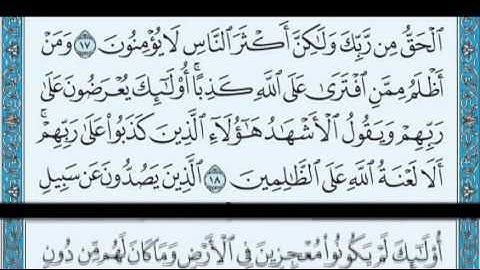 الْحَقُّ مِن رَّبِّكَ وَلَٰكِنَّ أَكْثَرَ النَّاسِ لَا يُؤْمِنُونَ ١٧ وَمَنْ
أَظْلَمُ مِمَّنِ افْتَرَىٰ عَلَى اللَّهِ كَذِبًا ۚ أُولَٰئِكَ يُعْرَضُونَ عَلَىٰ
رَبِّهِمْ وَيَقُولُ الْأَشْهَادُ هَٰؤُلَاءِ الَّذِينَ كَذَبُوا عَلَىٰ رَبِّهِمْ ۚ
أَلَا لَعْنَةُ اللَّهِ عَلَى الظَّالِمِينَ ١٨ الَّذِينَ يَصُدُّونَ عَن سَبِيلِ
أُولَٰئِكَ لَمْ يَكُونُوا مُعْجِزِينَ فِي الْأَرْضِ وَمَا كَانَ لَهُم مِّن دُونِ